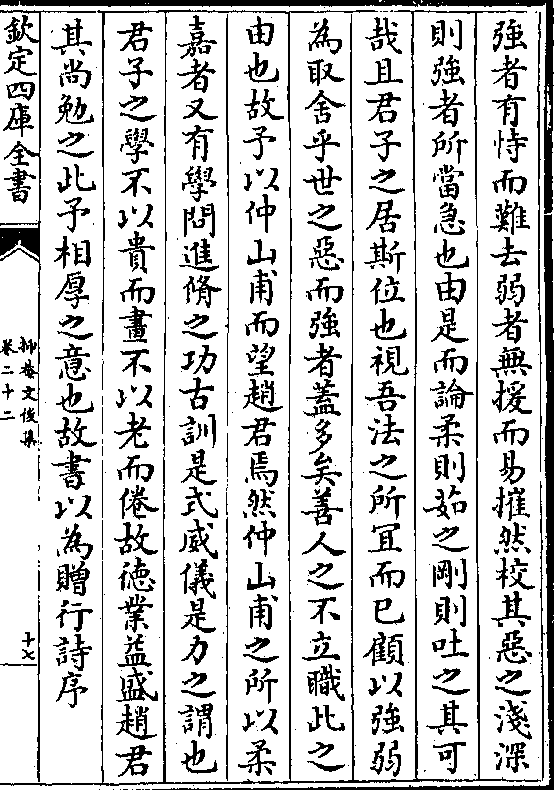 強者有恃而難去弱者無援而易摧然校其惡之淺深
則強者所當急也由是而論柔則茹之剛則吐之其可
哉且君子之居斯位也視吾法之所宜而已顧以強弱
為取舍乎世之惡而強者蓋多矣善人之不立職此之
由也故予以仲山甫而望趙君焉然仲山甫之所以柔
嘉者又有學問進脩之功古訓是式威儀是力之謂也
君子之學不以貴而畫不以老而倦故徳業益盛趙君
其尚勉之此予相厚之意也故書以為贈行詩序
欽定四庫全書
抑菴文後集
卷二十二
十七